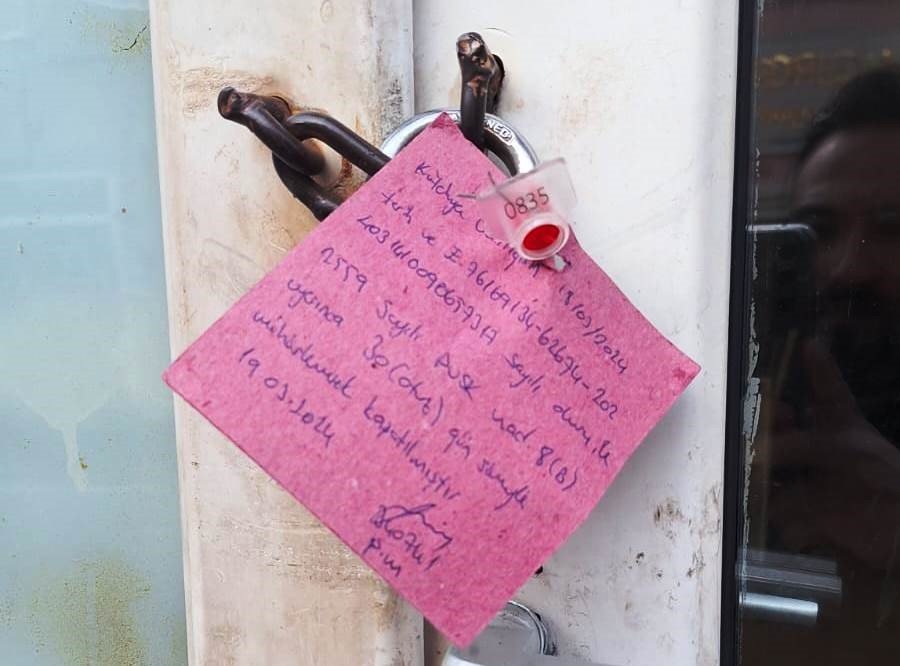 NED
0835
Kütahya Valiliğinin 18/03/2024
tarih ve E 76169134-62674-202
403161009065931 sayılı oluru ile
2559 Sayılı PVSK mad 8(B)
uyarınca 30(otuz) gün süreyle
mühürlenerek kapatılmıştır
19.03.2024
P.M